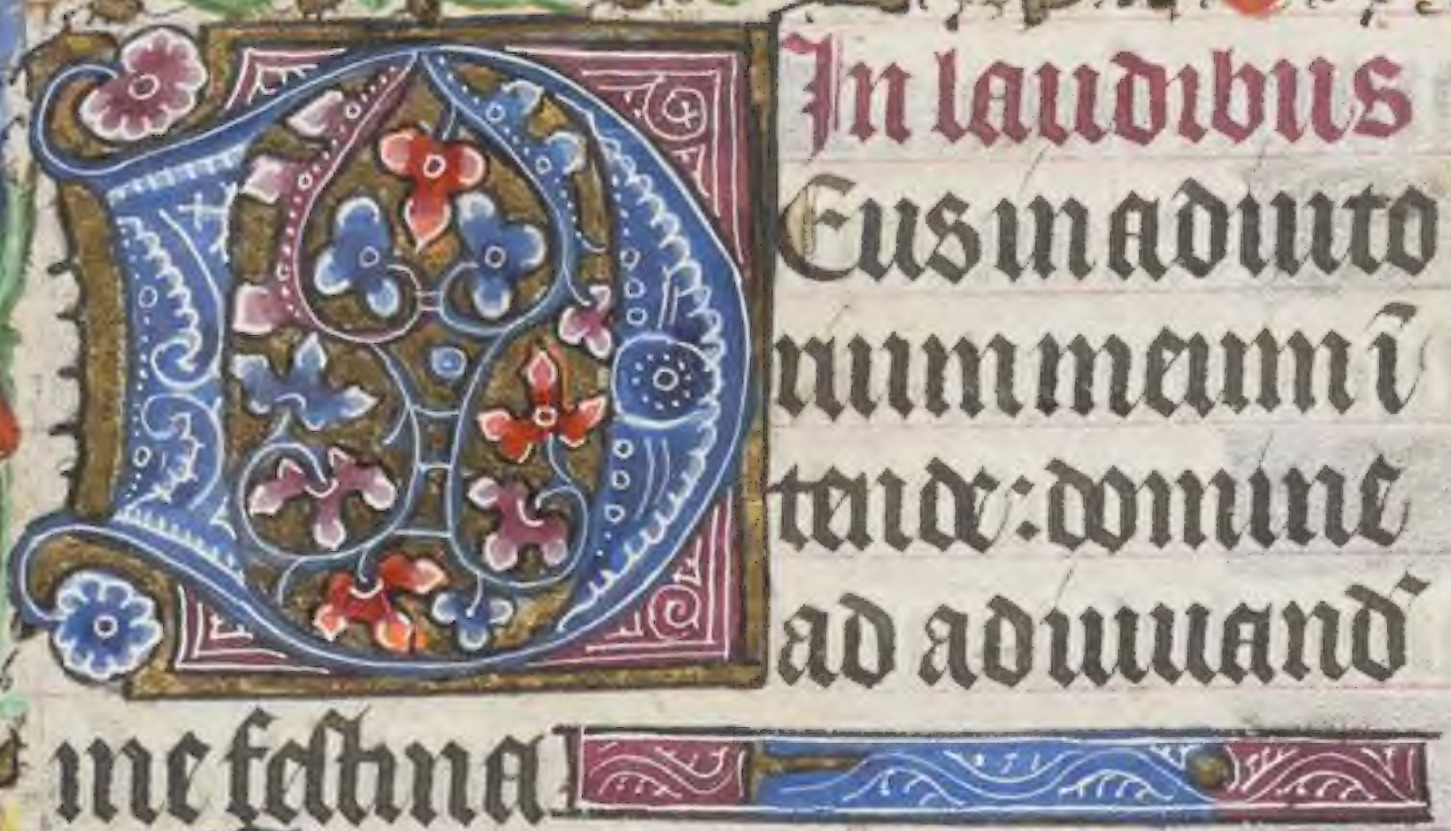 In laudibus
DEus in adiuto
rium meum ī
tende: domine
ad adiuuand̄
me festina